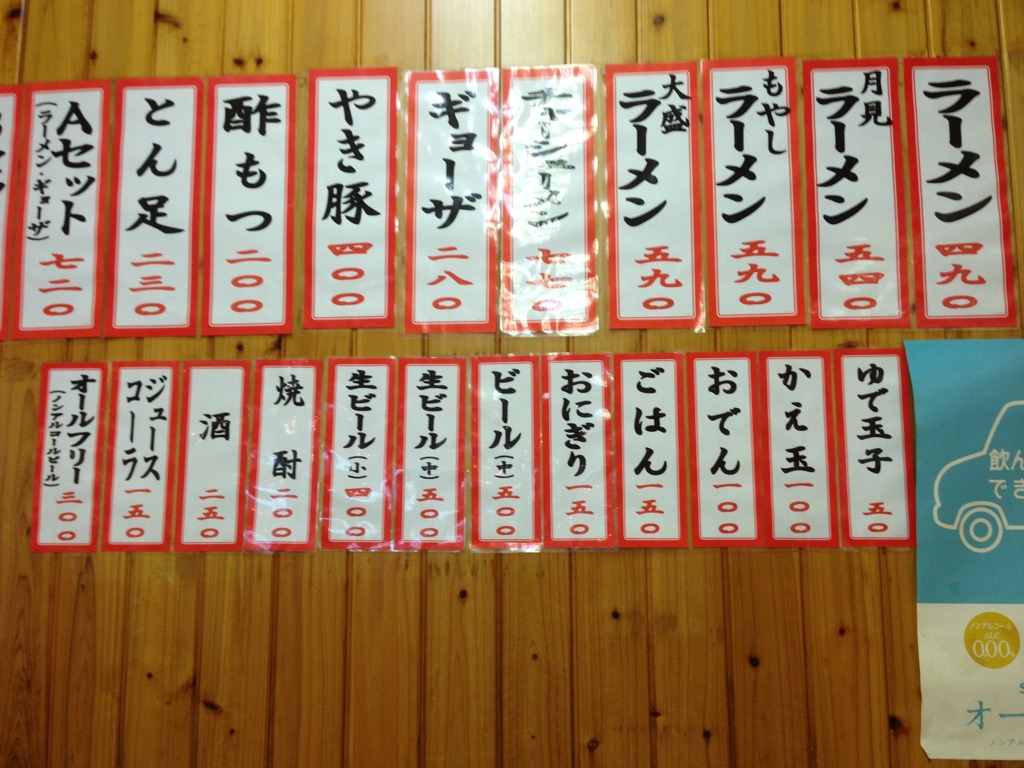 ラーメン 四九〇
月見ラーメン 五四〇
もやしラーメン 五九〇
大盛ラーメン 五九〇
チャーシューメン 七七〇
ギョーザ 二八〇
やき豚 四〇〇
酢もつ 二〇〇
とん足 二三〇
Aセット
(ラーメン・ギョーザ)
七二〇
ゆで玉子 五〇
かえ玉 一〇〇
おでん 一〇〇
ごはん 一五〇
おにぎり 一五〇
ビール(中) 五〇〇
生ビール(中) 五〇〇
生ビール(小) 四〇〇
焼酎 二〇〇
酒 二五〇
ジュース
コーラ
一五〇
オールフリー
(ノンアルコールビール)
三〇〇
飲ん
でき
ノンアルコール
ALC.
0.00%
オー
ノンアル